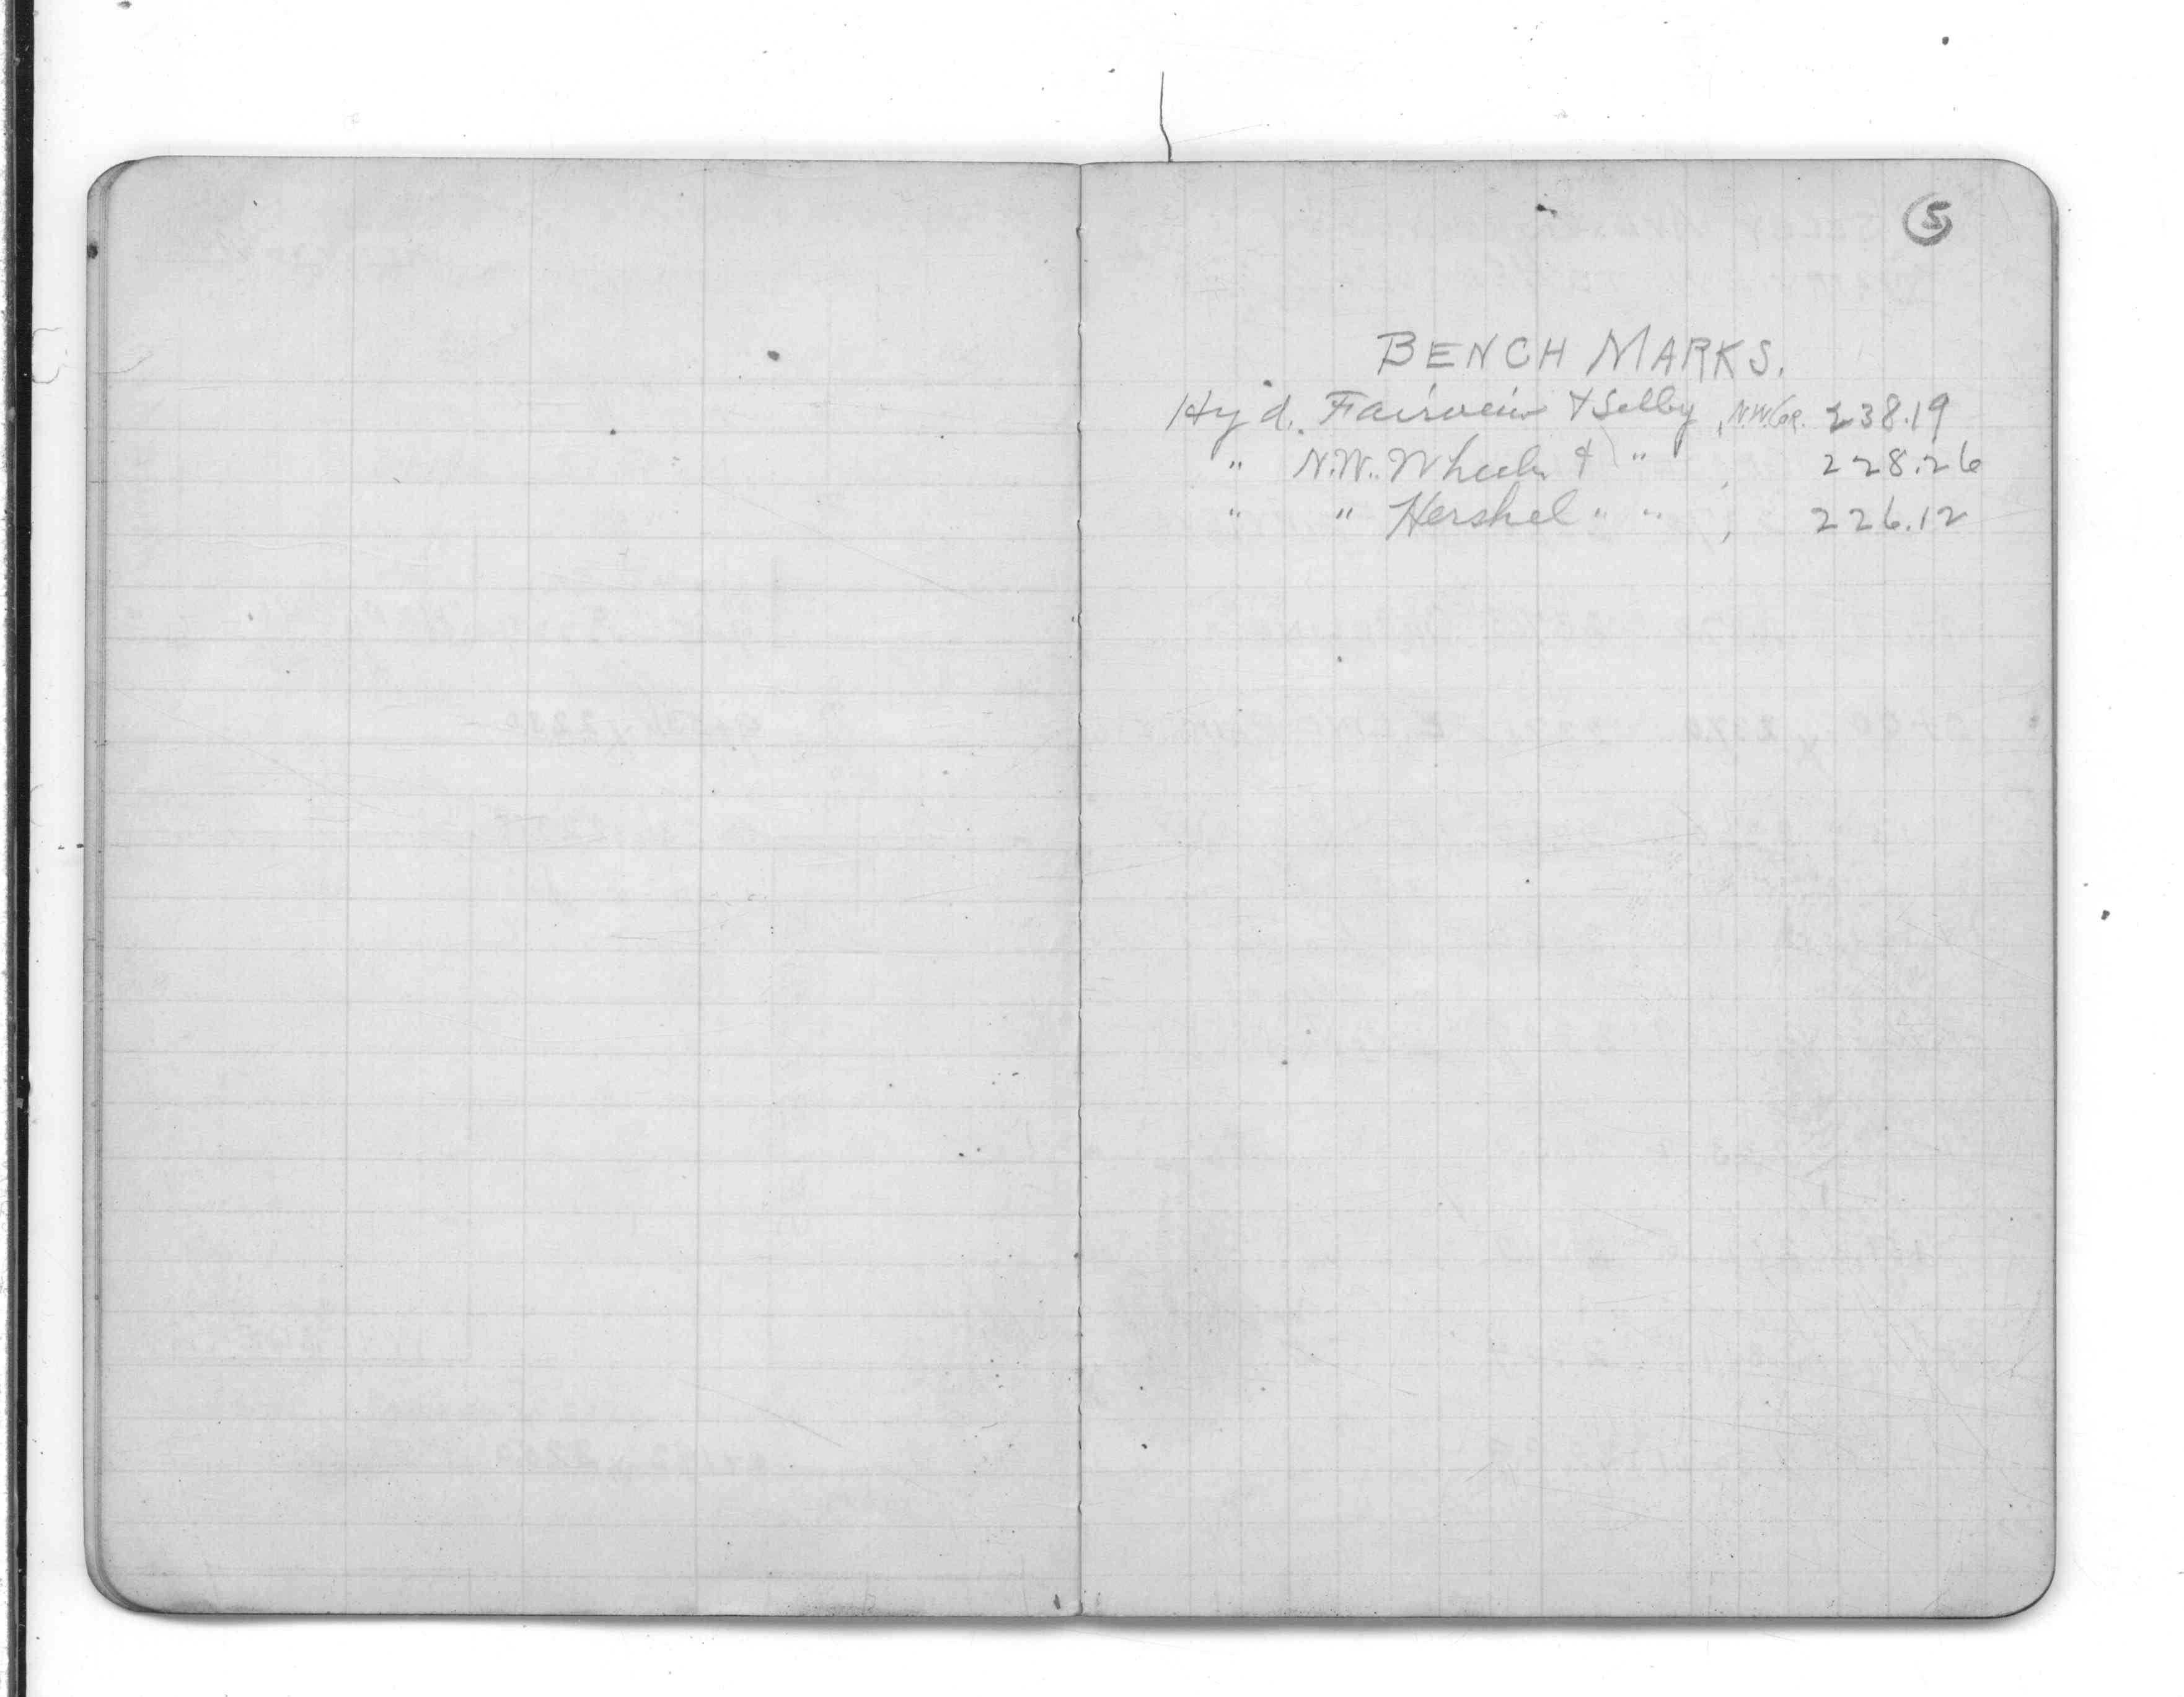 5
BENCH MARKS.
Hyd. Fairview & Selby, N.W. Cor. 238.19
" N.W. Wheeler & " , 228.26
" " Hershel " " , 226.12